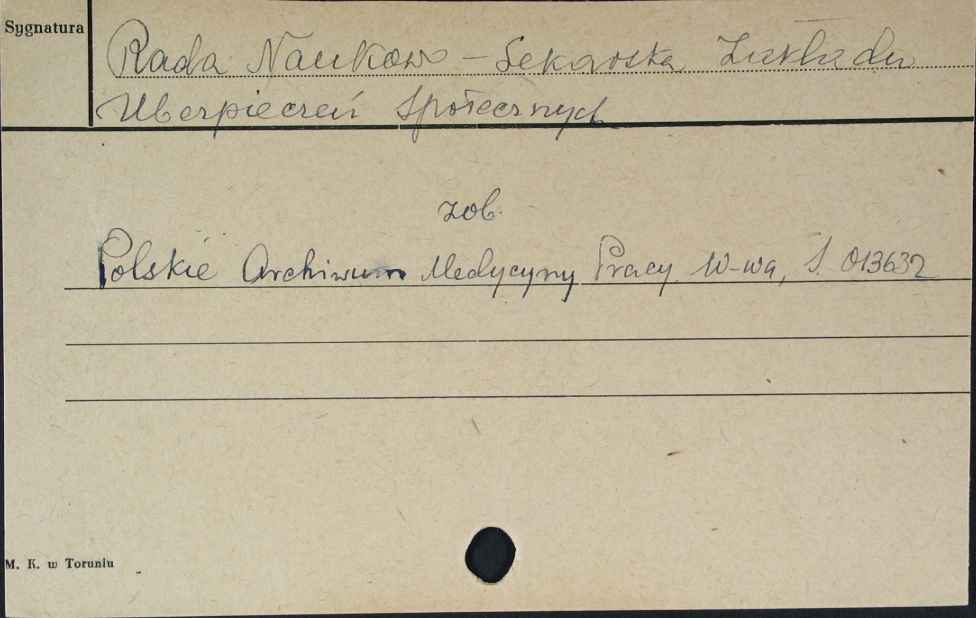 Sygnatura
Rada Naukow - Lekarska Zakładu
Ubezpieczeń Społecznych
zob.
Polskie Archiwum Medycyny Pracy W-wa, S. 013632
M. K. w Toruniu